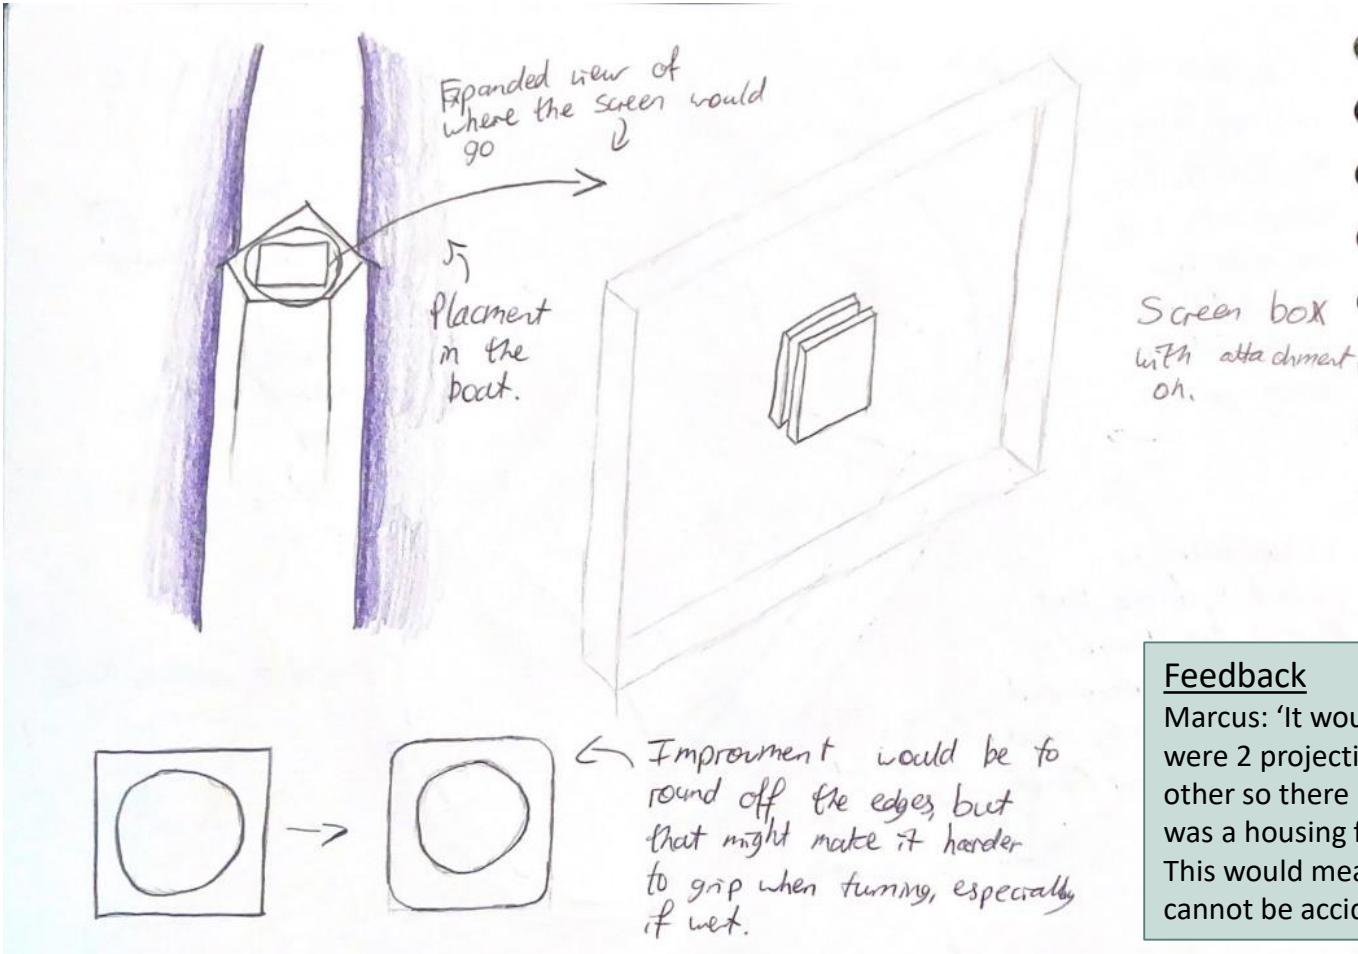 Expanded view of
where the screen would
go
Placment
in the
boat.
Screen box
with attachment
on.
Improvment would be to
round off the edges, but
that might make it harder
to grip when turning, especially
if wet.
Feedback
Marcus: ‘It wou
were 2 projecti
other so there
was a housing f
This would mea
cannot be accid